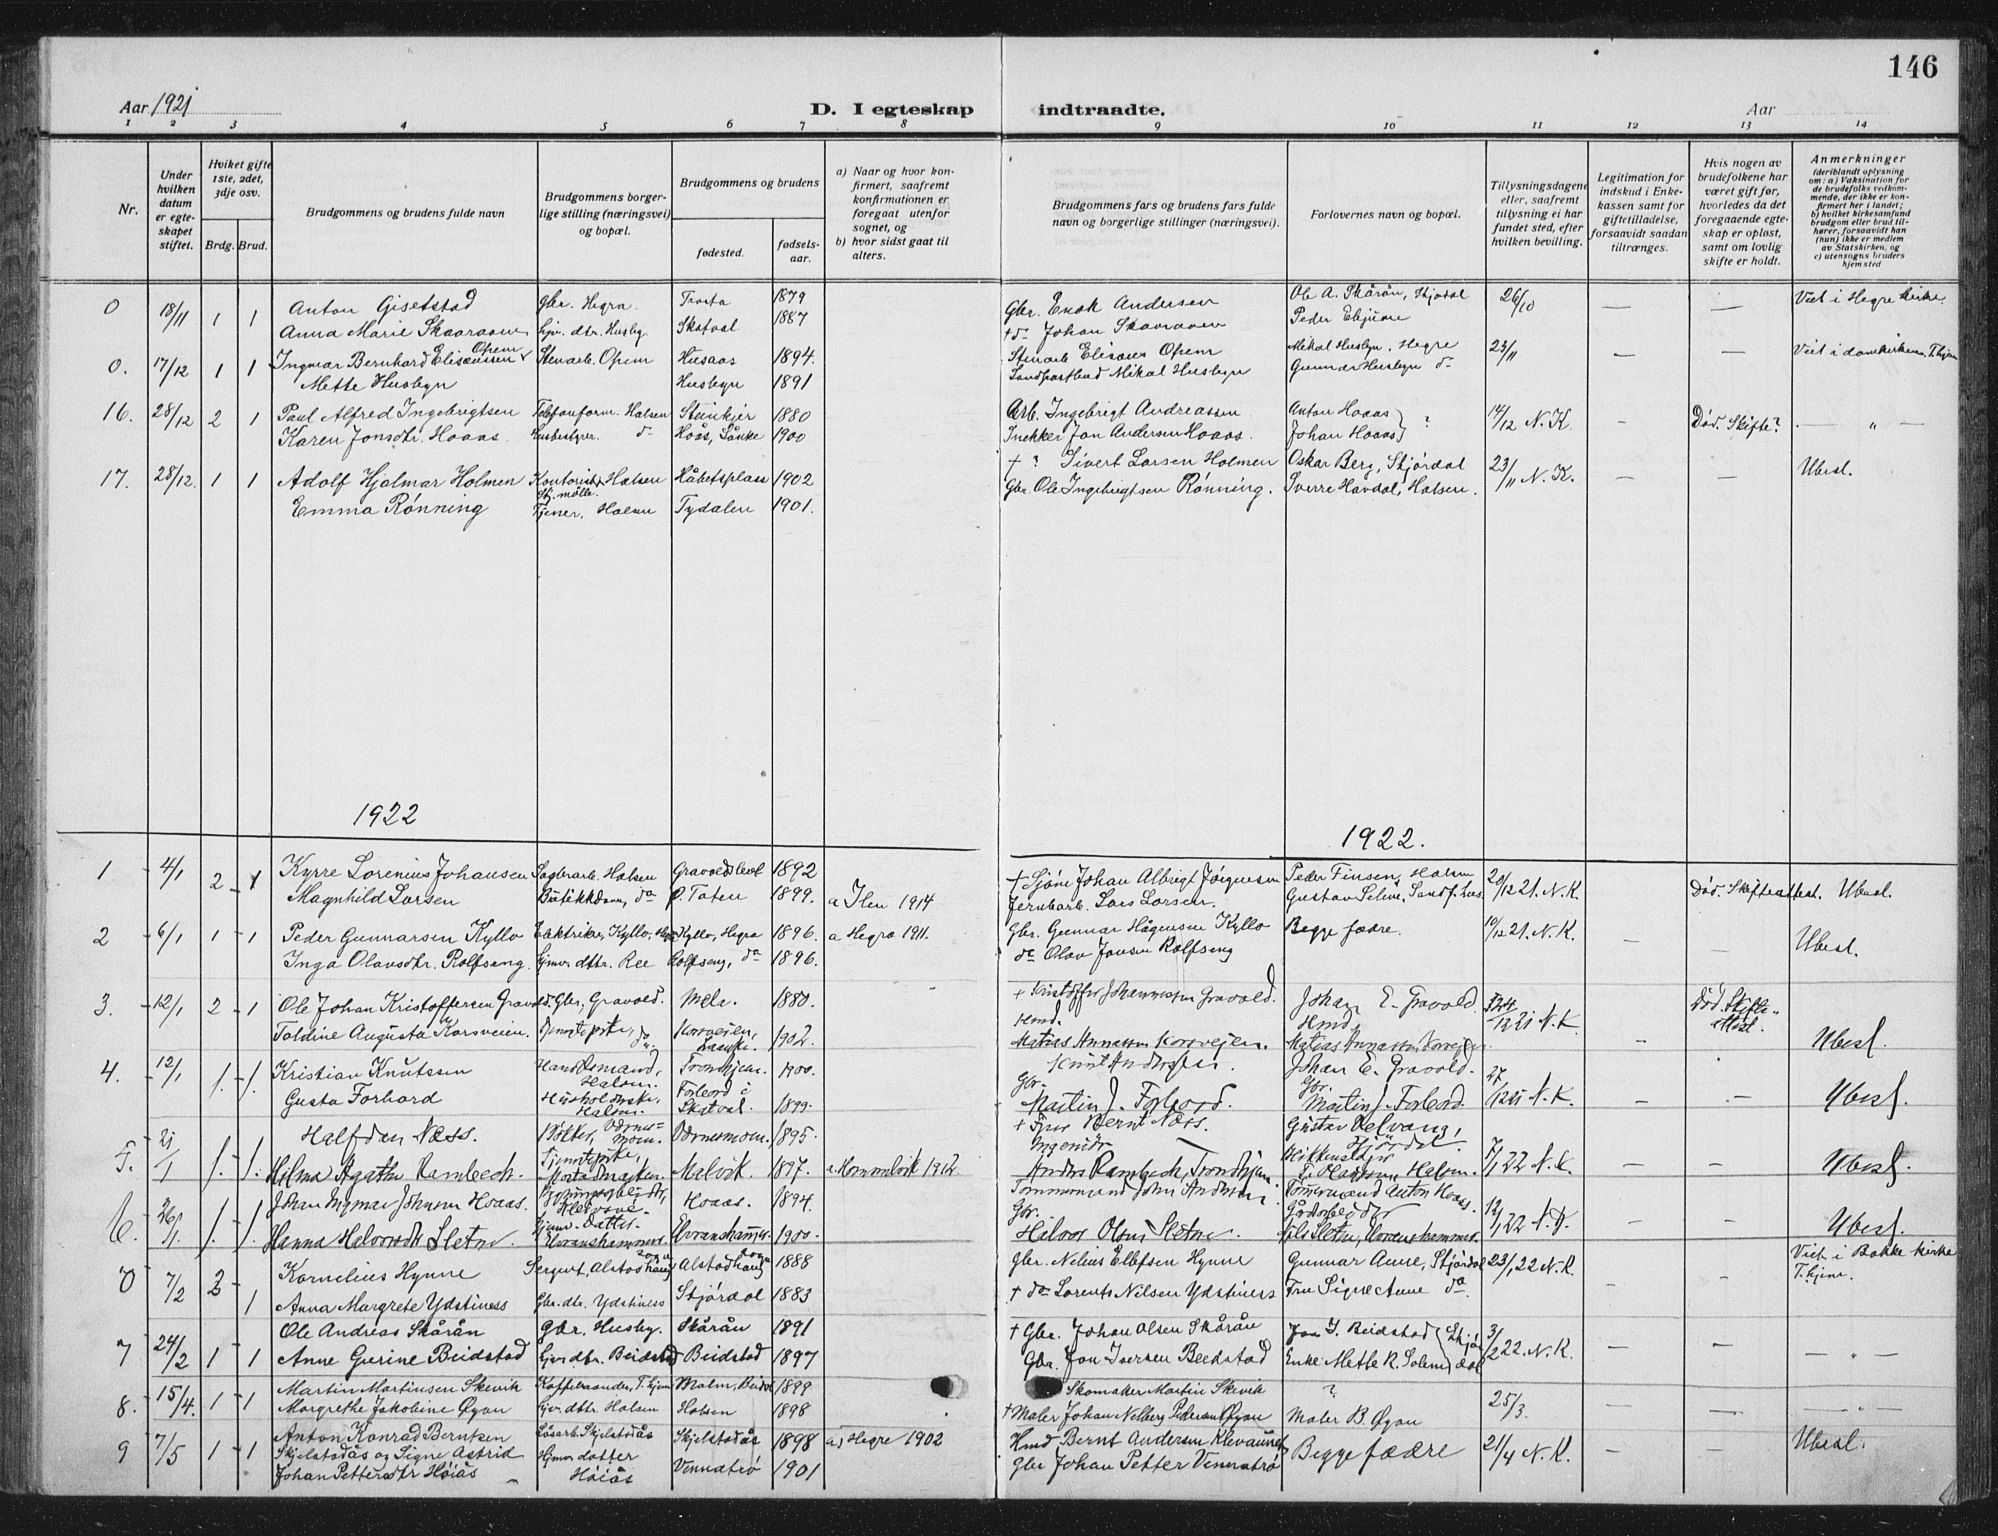 146
Aar 1921
D. I egteskap indtraadte.
Aar
1 2 3 4 5 6 7 8 9 10 11 12 13 14
Nr.
Under hvilken datum er egte-skapet stiftet.
Hviket gifte 1ste, 2det, 3dje osv.
Brdg. Brud.
Brudgommens og brudens fulde navn
Brudgommens borger-lige stilling (næringsvei) og bopæl.
Brudgommens og brudens
fødested.
fødsels-aar.
a) Naar og hvor kon-firmert, saafremt konfirmationen er foregaat utenfor sognet, og
b) hvor sidst gaat til alters.
Brudgommens fars og brudens fars fulde navn og borgerlige stillinger (næringsvei).
Forlovernes navn og bopæl.
Tillysningsdagene eller, saafremt tillysning ei har fundet sted, efter hvilken bevilling.
Legitimation for indskud i Enke-kassen samt for giftetilladelse, forsaavidt saadan tiltrænges.
Hvis nogen av brudefolkene har været gift før, hvorledes da det foregaaende egte-skap er opløst, samt om lovlig skifte er holdt.
Anmerkninger (deriblandt oplysning om: a) Vaksination for de brudefolks vedkom-mende, der ikke er kon-firmert her i landet; b) hvilket kirkesamfund brudgom eller brud til-hører, forsaavidt han (hun) ikke er medlem av Statskirken, og c) utensogns bruders hjemsted
0 18/11 1 1 Anton Gisetstad gbr. Hegra 1879 Gbr. Enok Andersen Ole A. Skårån, Stjørdal 26/10 — — Viet i Hegre kirke.
Anna Marie Skaaraaen hjv. dtr. Husby Skatval 1887 + do Johan Skaaraaen Peder
0. 17/12 1 1 Ingmar Bernhard Elisæussen Opem Stenarb. Opem Husaas 1894. Stenarb Elisæus Opem Mikal Husbyn, Hegre 23/11 — — Viet i domkirken, T.hjem
Mette Husbyn Husbyn 1891 Landpostbud Mikal Husbyn Gunnar Husbyn do
16. 28/12 2 1 Paul Alfred Ingebrigtsen Telefonform. Halsen Steinkjer 1880 Arb. Ingebrigt Andreassen Anton Hoaas ? 14/12 N. K. — Død. Skifte? — „ —
Karen Jonsdtr. Hoaas. Husbestyrer. do Hoås, Lånke 1900 Snekker Jon Andersen Hoaas. Johan Hoaas
17. 28/12. 1 1 Adolf Hjalmar Holmen Kontorist Halsen Håbetsplass 1902 + ? Sivert Larsen Holmen Oskar Berg, Stjørdal 23/11 N. K. — — Ubesl.
Emma Rønning Tjener, Halsen Tydalen 1901. Gbr. Ole Ingebrigtsen Rønning. Sverre Havdal, Halsen.
1922
1922.
1 4/1 2 1 Kyrre Lorenius Johansen Sagbrarb. Halsen 1892 + Johan Albrigt Jørgensen Peder Finsen, Halsen 20/12 21. N. K. Død. Skifteattest. Ubesl.
Magnhild Larsen Butikkdame, do Ø. Toten 1899. a Ilen 1914 Jernbarb. Lars Larsen. Gustav Selnæ,
2 6/1 1 1 Peder Gunnarsen Kyllo Elektriker, Kyllo, Hegra Kyllo, Hegra 1896. a Hegra 1911. Gbr. Gunnar Hågensen Kyllo Begge fædre. 10/12 21. N. K. — — Ubesl.
Inga Olavsdtr. Rolfseng. hjmv. dttr. Ree Rolfseng, do 1896. do Olav Jonsen Rolfseng
3. 12/1 2 1 Ole Johan Kristoffersen Gravold. Gbr., Gravold. Mela. 1880. + Kristoffer Johannessen Gravold. Johan E. Gravold 12 21 N. K. Død. Skifte-attest.
Toldine Augusta Korsveien. Tjenestepike, do Korsveien, 1902. Hmd. Matias Annassen Korsvejen. Hmd. Matias Annassen Korsvejen. — Ubesl.
4. 12/1 1. 1. Kristian Knutssen Handelsmand, Halsen. Trondhjem. 1900. Knut Johan E. Gravold. 27/12 21 N. K. — — Ubesl.
Gusta Forbord Husholderske, Halsen. Forbord i Skatval. 1899. Gbr. Martin J. Forbord. Gbr. Martin J. Forbord.
5. 21/1 1. 1. Halfdan Næss. Bøkker, Værnesmoen. Værnesmoen. 1895. + Bernt Næss. Gustav Relvang, Stjørdal 7/1 22 N. K. — — Ubesl.
Hilma Agathe Rambech. Tjenestepike, Malvik. 1897. a. Hommelvik 1912. Anders Rambech, Trondhjem. Halsen.
6. 26/1 1. 1. Johan Ingmar Johnsen Hoaas. Hoaas. 1894. Tømmermand John Andersen Tømmermand Anton Hoaas. 12/1 22 N. K. — — Ubesl.
Hanna Halvorsdtr Sletne. Hjmv. Datter. 1900. Gbr. Halvor Olsen Sletne Gårdarbeider Nils Sletne,
0 7/2 2 1 Kornelius Hynne Sergent, Alstadhaug sogn Alstadhaug sogn 1888 Gbr. Nelius Ellefsen Hynne Gunnar Aune, Stjørdal 23/1 22 N. K. — — Viet i Bakke kirke T.hjem.
Anna Margrete Ydstiness Gbr. dtr. Ydstiness Stjørdal 1883 + do Lorents Nilsen Ydstiness Fru Signe Aune do
7 24/2 1 1 Ole Andreas Skårån gbr. Husby. Skårån 1891 + Gbr. Johan Olsen Skårån Jon I. Beidstad Stjørdal 3/2 22. N. K. — — — „ —
Anne Gurine Beidstad hjmv dtr. Beidstad Beidstad 1897 Gbr. Jon Iversen Beidstad Enke Mette K. Solem
8. 15/4. 1 1 Martin Martinsen Skevik T.hjem Malm, 1899 Skomaker Martin Skevik ? 25/3. — — — „ —
Margrethe Jakobine Øyan hjv. dttr. Halsen Halsen 1898 + Maler Johan Nelberg Pedersen Øyan Maler B. Øyan
9 7/5 1 1 Anton Konrad Berntsen Løsarb. Skjelstadås Skjelstadås 1898 a) Hegre 1902 Hmd Bernt Andersen Klevaunet Begge fædre 21/4 N. K. — — Ubesl.
Skjelstadås og Signe Astrid Hjmv datter
Johan Pettersdtr Høiås Høiås Vennatrø 1901 Gbr Johan Petter Vennatrø